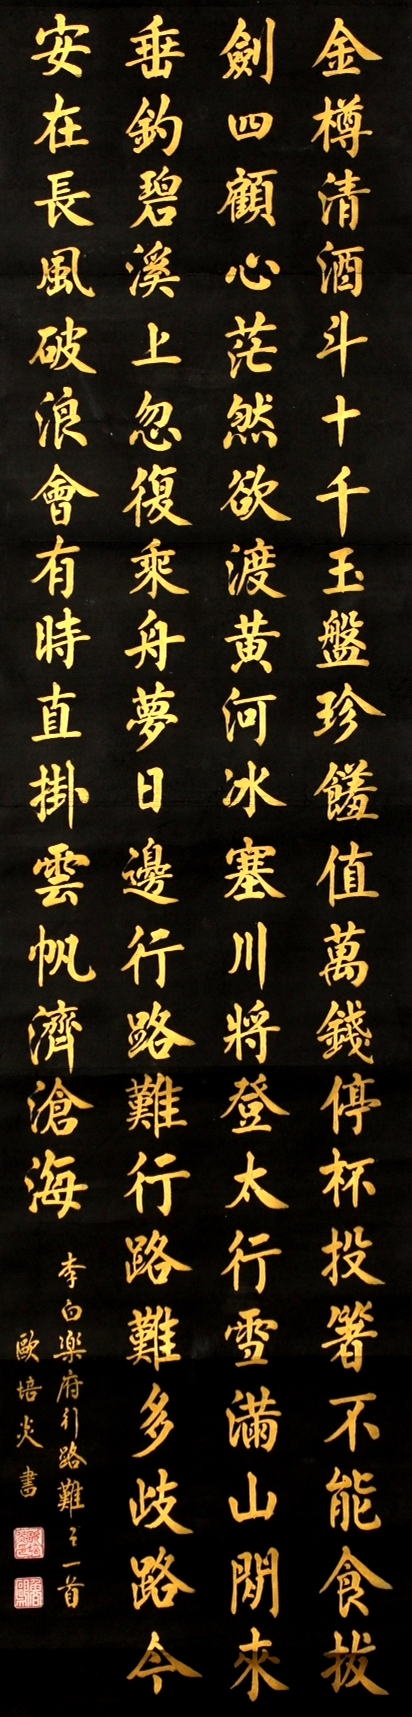 金樽清酒斗十千玉盤珍饈值萬錢停杯投箸不能食拔
劍四顧心茫然欲渡黃河冰塞川將登太行雪滿山閒來
垂釣碧溪上忽復乘舟夢日邊行路難行路難多歧路今
安在長風破浪會有時直掛雲帆濟滄海
李白樂府行路難之一首
歐培炎書